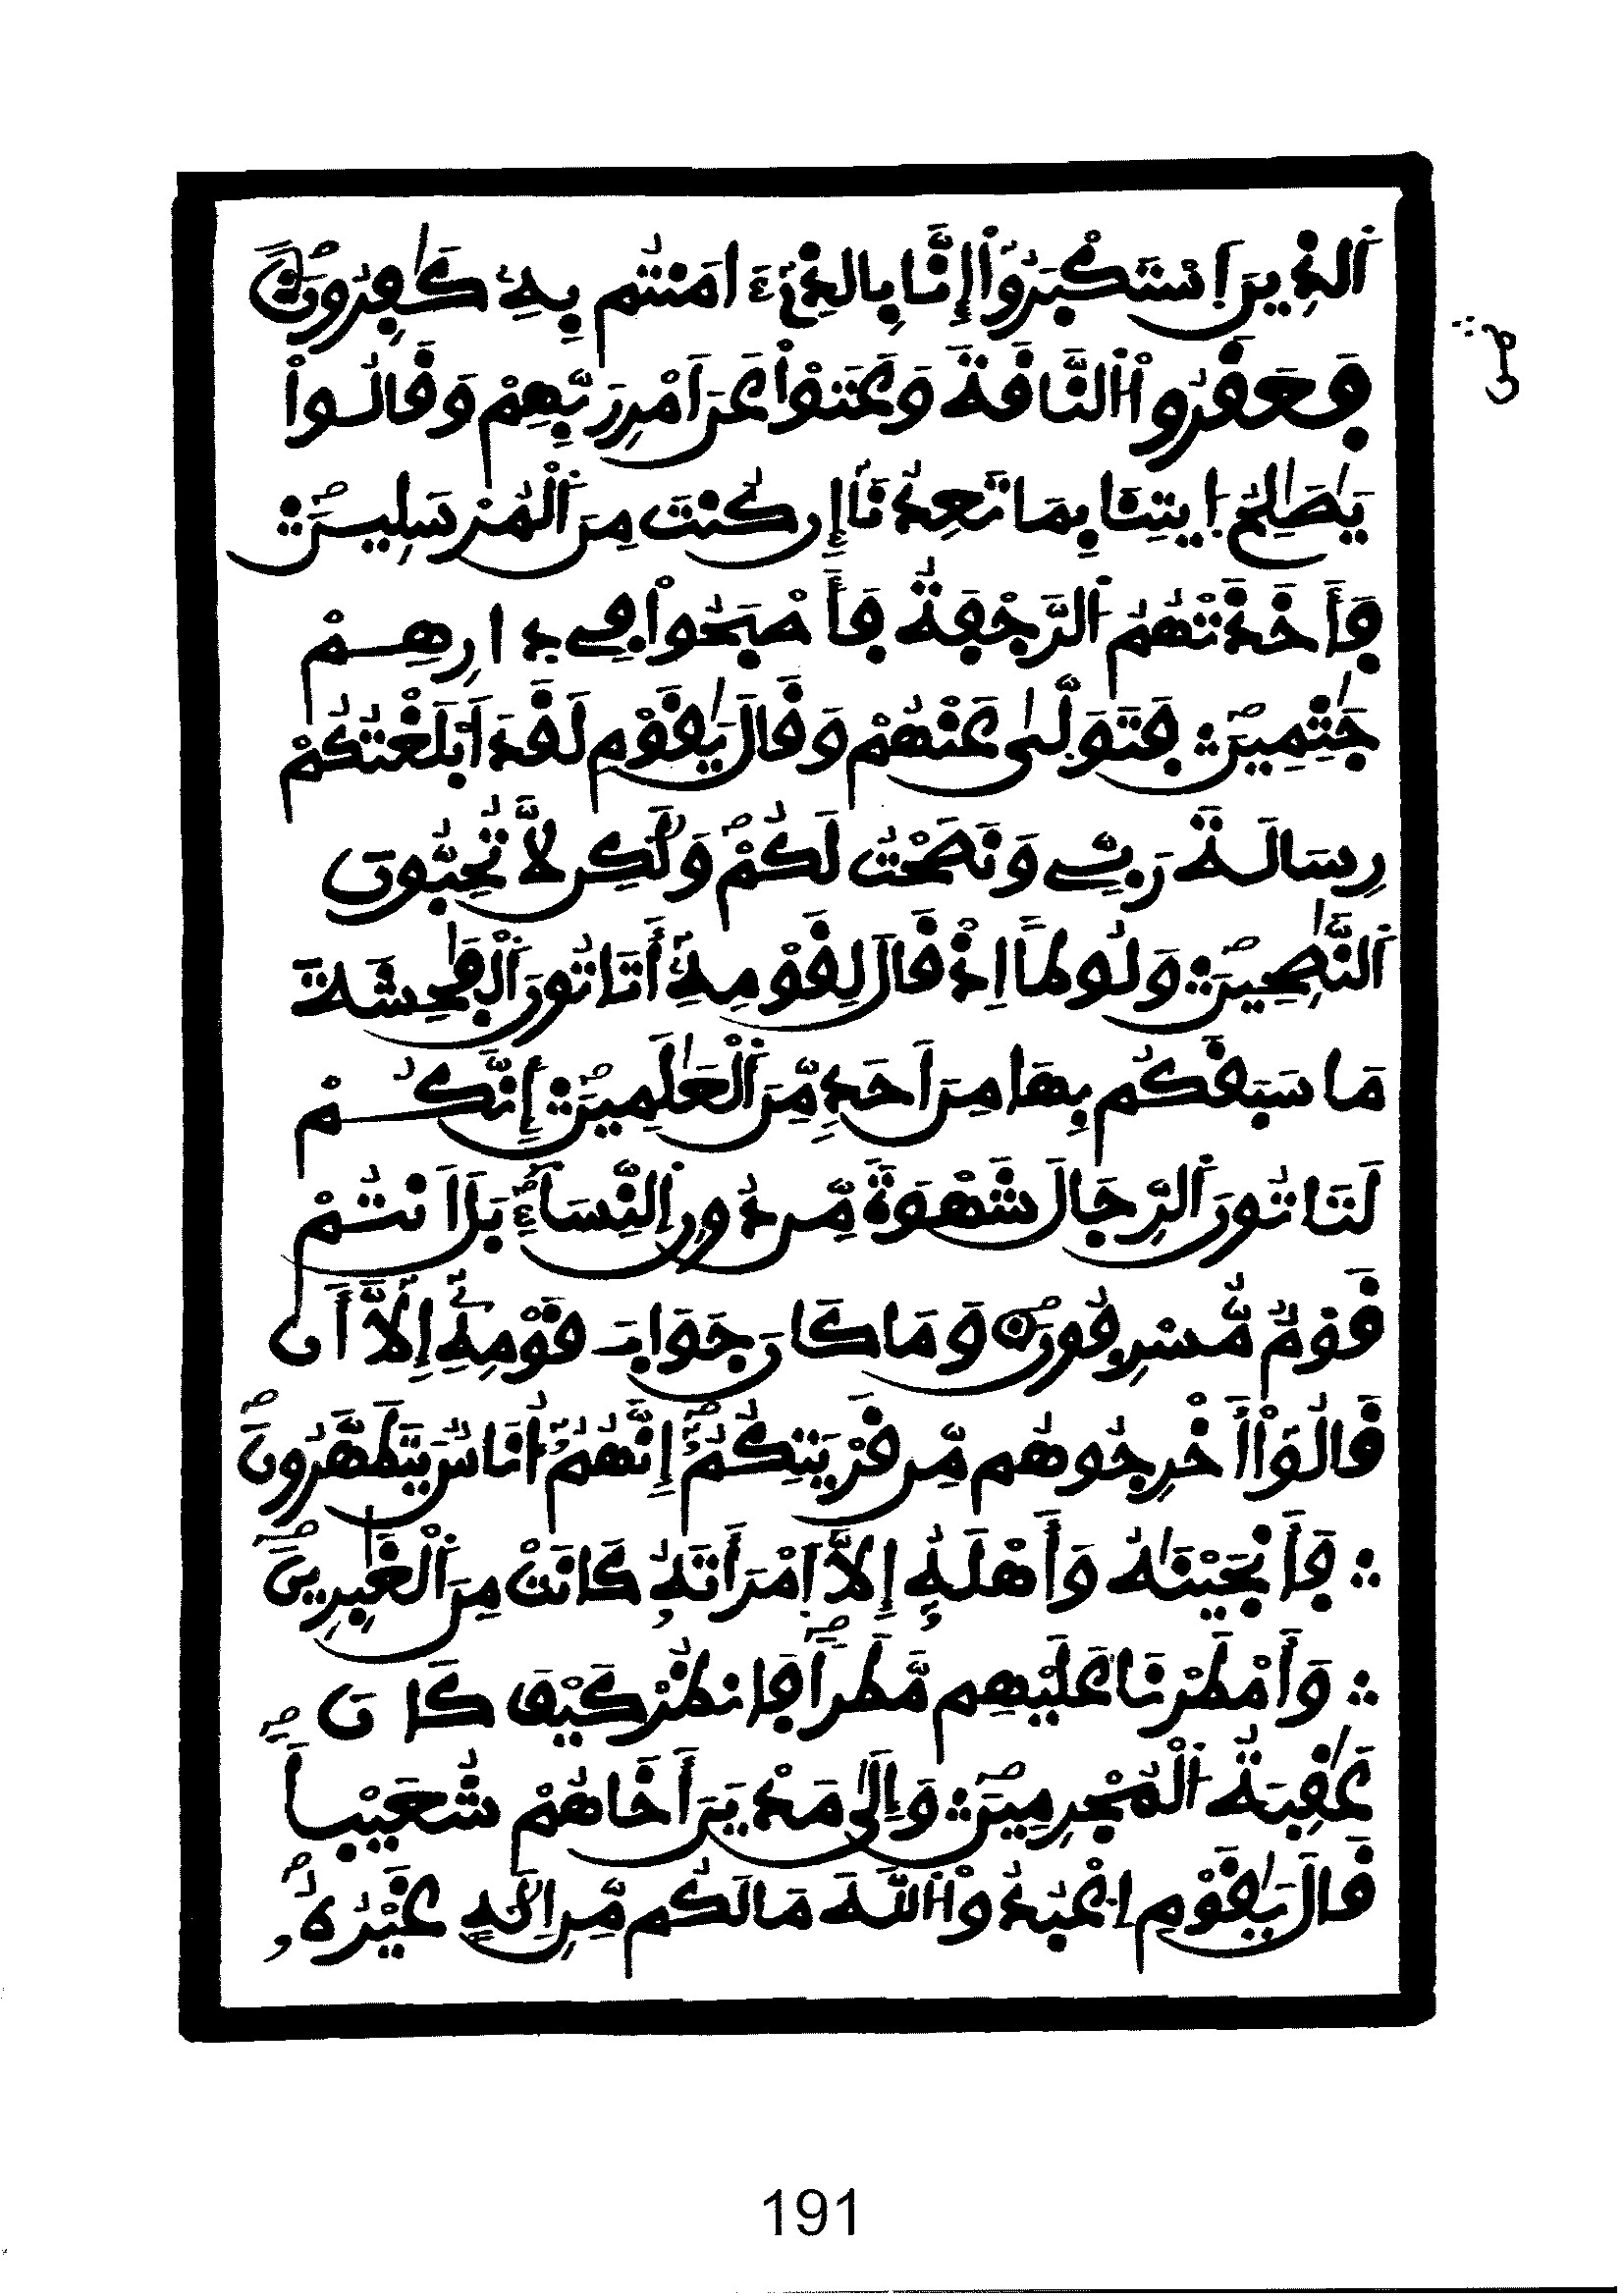 اَ۬لذِينَ اَ۪سْتَكْبَرُوٓاْ إِنَّا بِالذِےٓ ءَامَنتُم بِهِۦ كَٰفِرُونَۖ
فَعَقَرُواْ اُ۬لنَّاقَةَ وَعَتَوْاْ عَنَ اَمْرِ رَبِّهِمْ وَقَالُواْ
يَٰصَٰلِحُ اُ۪يتِنَا بِمَا تَعِدُنَآ إِن كُنتَ مِنَ اَ۬لْمُرْسَلِينَۖ
فَأَخَذَتْهُمُ اُ۬لرَّجْفَةُ فَأَصْبَحُواْ فِے دٍ۪ارِهِمْ
جَٰثِمِينَۖ فَتَوَلَّىٰ عَنْهُمْ وَقَالَ يَٰقَوْمِ لَقَدَ اَبْلَغْتُكُمْ
رِسَالَةَ رَبِّے وَنَصَحْتُ لَكُمْۖ وَلَٰكِن لَّا تُحِبُّونَ
اَ۬لنَّٰصِحِينَۖ وَلُوطاً اِذْ قَالَ لِقَوْمِهِۦٓ أَتَاتُونَ اَ۬لْفَٰحِشَةَ
مَا سَبَقَكُم بِهَا مِنَ اَحَدٍ مِّنَ اَ۬لْعَٰلَمِينَۖ إِنَّكُمْ
لَتَاتُونَ اَ۬لرِّجَالَ شَهْوَةً مِّن دُونِ اِ۬لنِّسَآءِۖ بَلَ اَنتُمْ
قَوْمٌ مُّسْرِفُونَۖ وَمَا كَانَ جَوَابَ قَوْمِهِۦٓ إِلَّآ أَن
قَالُوٓاْ أَخْرِجُوهُم مِّن قَرْيَتِكُمُۥٓۖ إِنَّهُمُۥٓ أُنَاسٌ يَتَطَهَّرُونَۖ
فَأَنجَيْنَٰهُ وَأَهْلَهُۥٓ إِلَّا اَ۪مْرَأَتَهُۥ كَانَتْ مِنَ اَ۬لْغَٰبِرِينَۖ
وَأَمْطَرْنَا عَلَيْهِم مَّطَراًۖ فَانظُرْ كَيْفَ كَانَ
عَٰقِبَةُ اُ۬لْمُجْرِمِينَۖ وَإِلَىٰ مَدْيَنَ أَخَاهُمْ شُعَيْباًۖ
قَالَ يَٰقَوْمِ اِ۟عْبُدُواْ اُ۬للَّهَ مَا لَكُم مِّنِ اِلَٰهٍ غَيْرُهُۥۖ
191